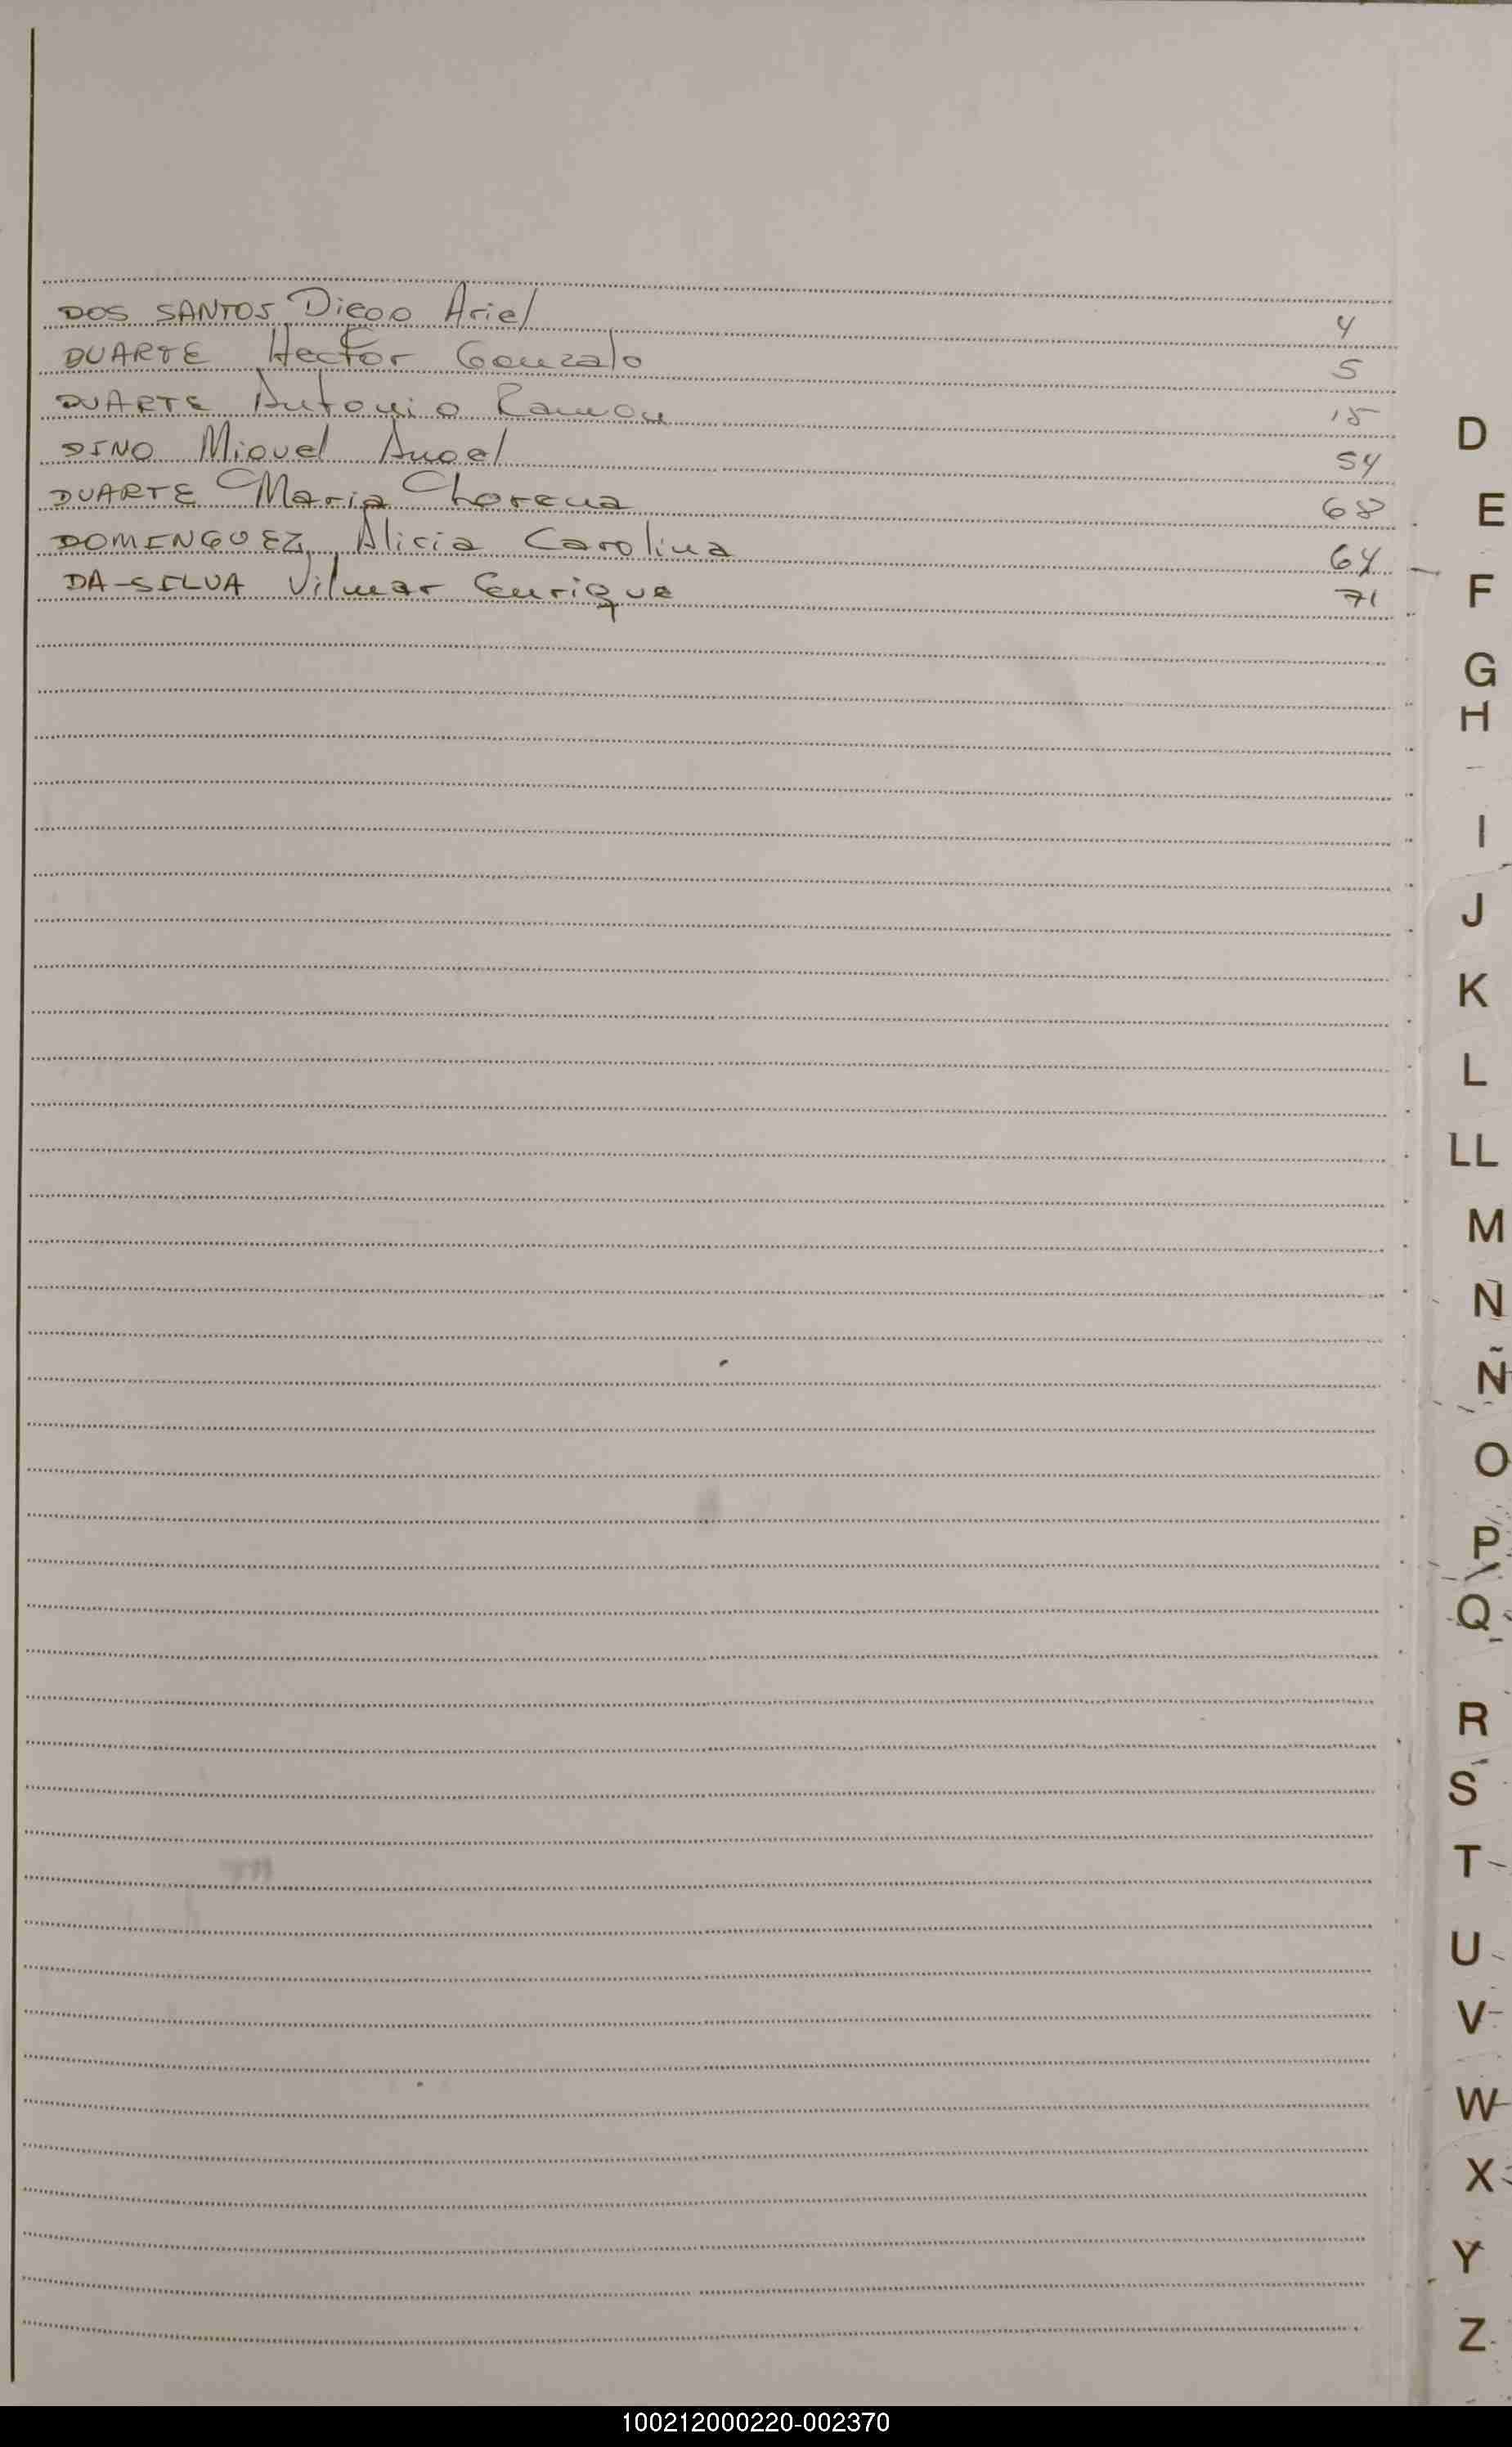 DOS SANTOS Diego Ariel 4
DUARTE Hector Gonzalo 5
DUARTE Antonio Ramon 15
DINO Miguel Angel 54
DUARTE Maria Lorena 68
DOMINGUEZ, Alicia Carolina 64
DA-SILVA Vilmar Enrique 71
D
E
F
G
H
I
J
K
L
LL
M
N
Ñ
O
P
Q
R
S
T
U
V
W
X
Y
Z
100212000220-002370